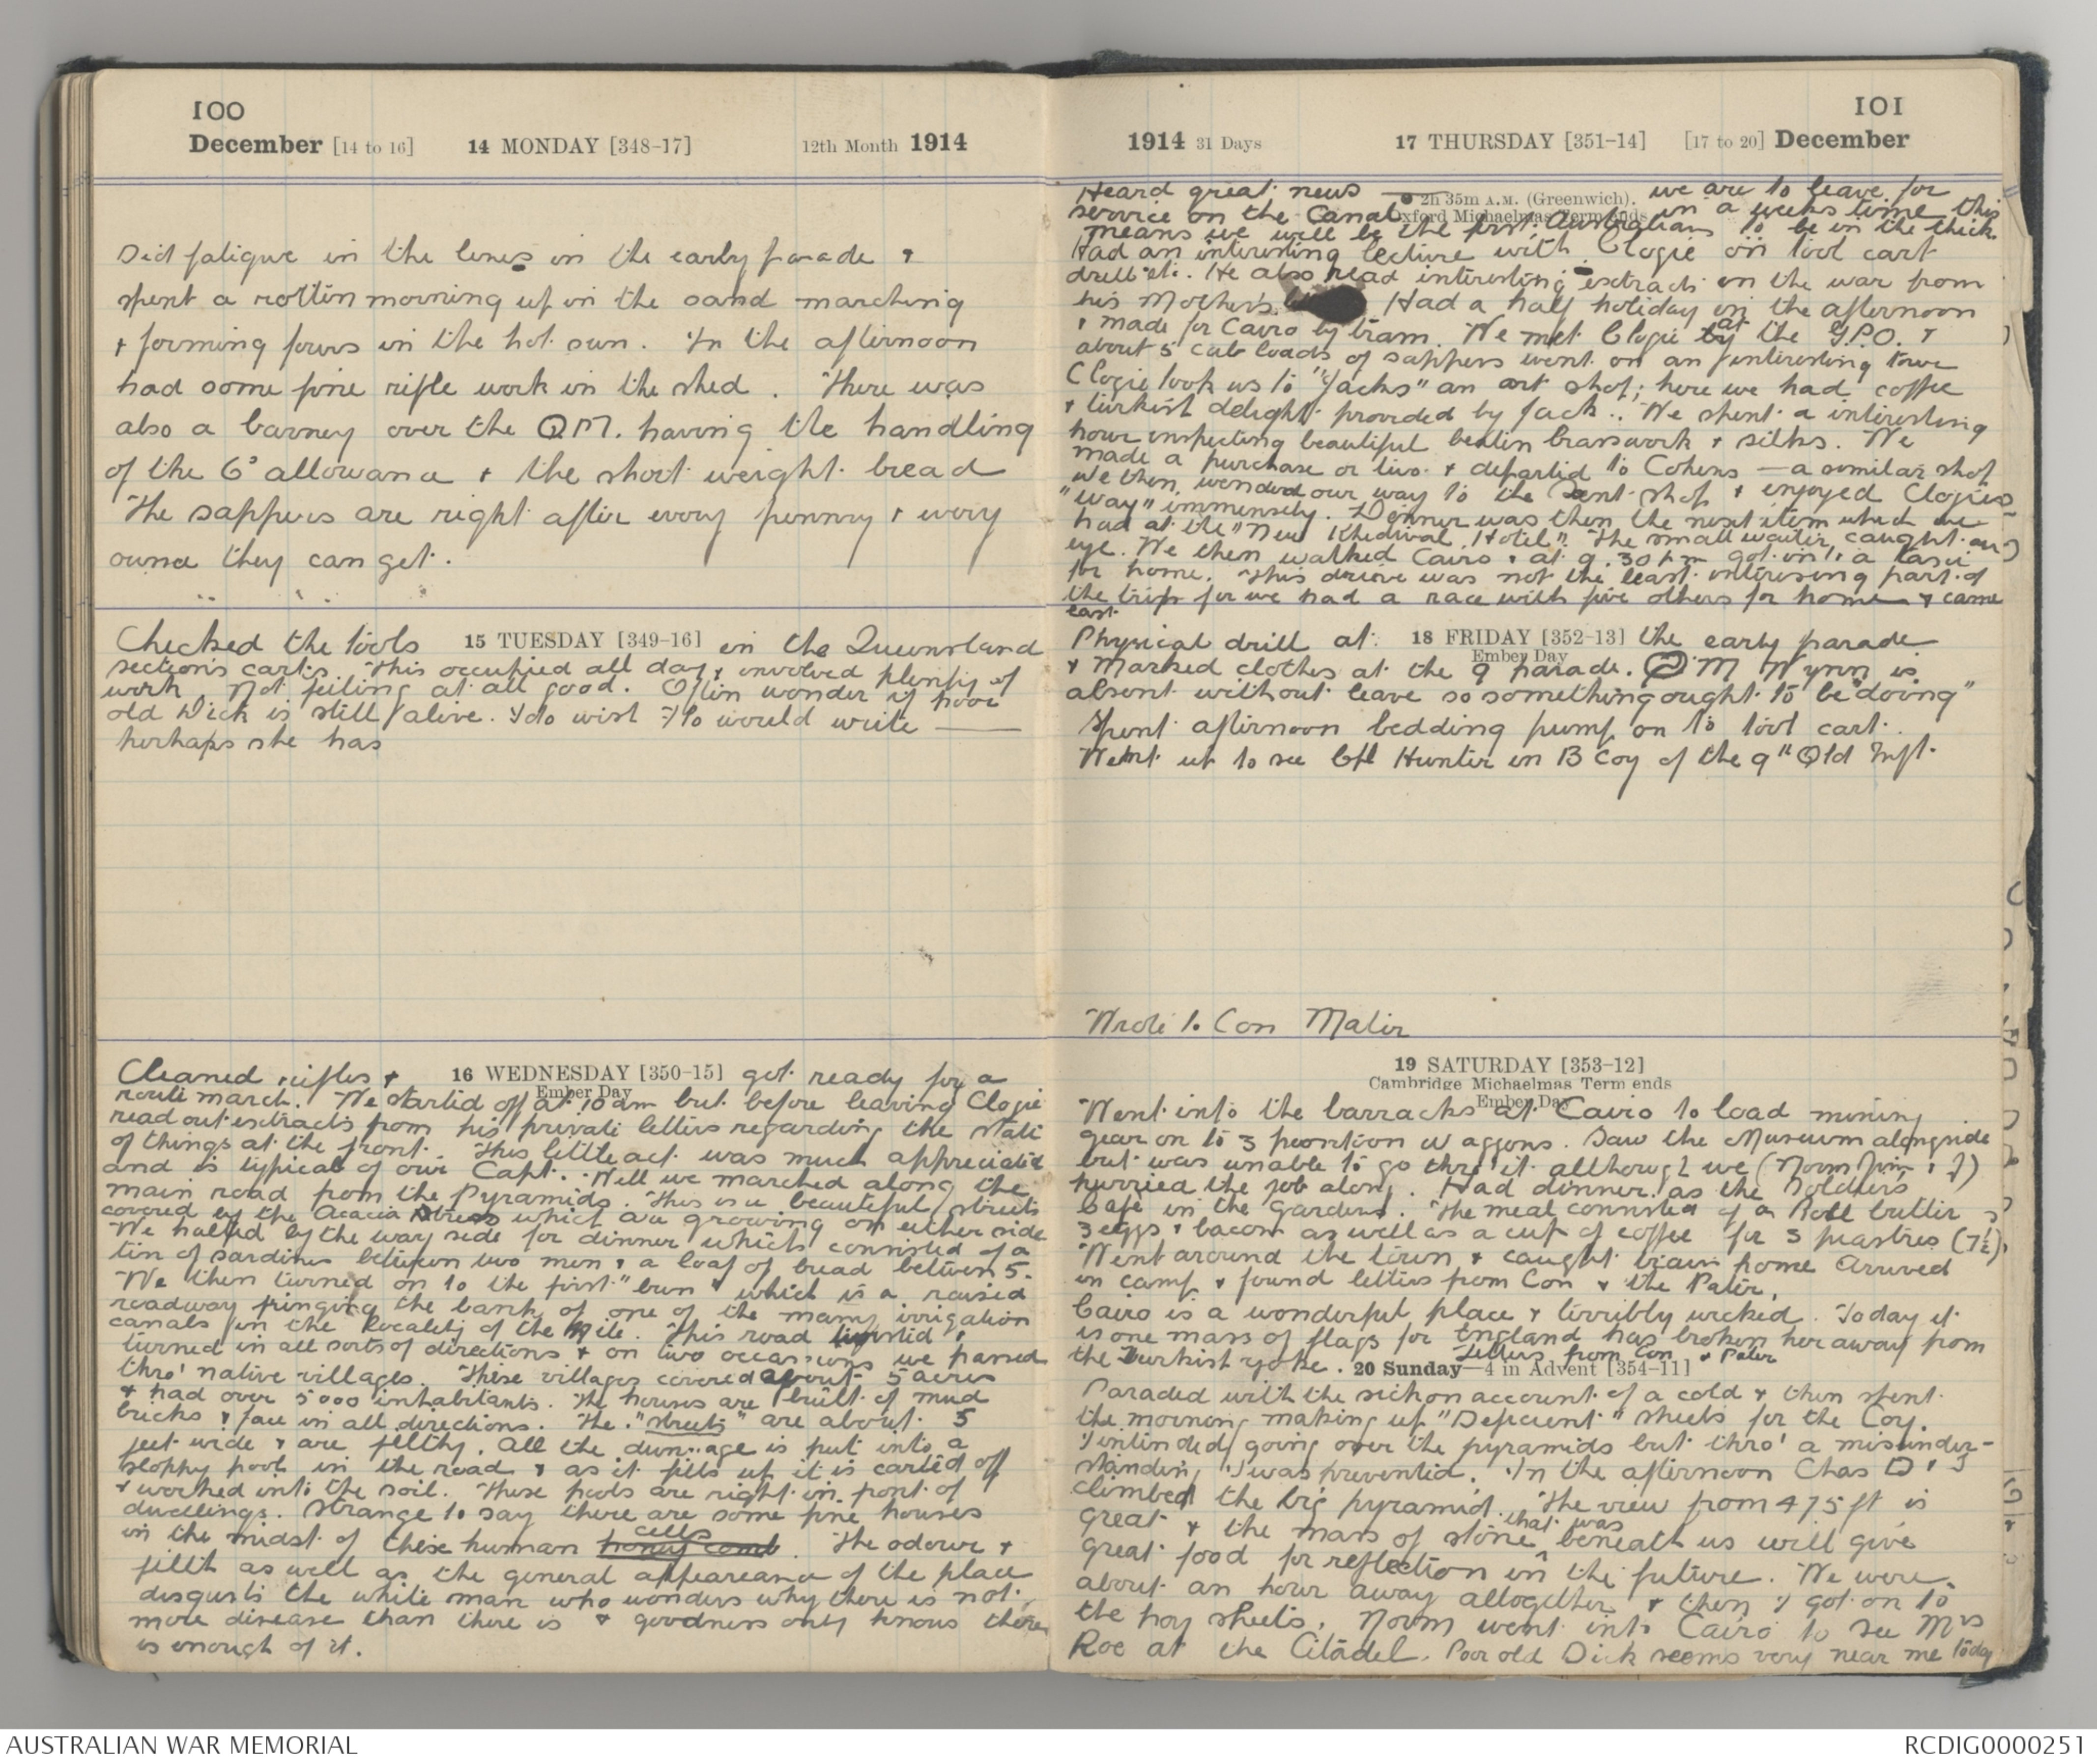 100
December [14 to 16] 14 MONDAY [348-17] 12th Month 1914
Did fatigue in the lines in the early parade &
spent a rotten morning up in the sand marching
& forming fours in the hot sun. In the afternoon
had some fine rifle work in the shed. There was
also a barney over the QM. having the handling
of the 6d allowance & the short weight bread
The sappers are right after every penny & every
ounce they can get.
Checked the tools 15 TUESDAY [349-16] in the Queensland
section's carts. This occupied all day & involved plenty of
work. Not feeling at all good. Often wonder if poor
old Dick is still alive. I do wish Flo would write —
perhaps she has
Cleaned rifles & 16 WEDNESDAY [350-15] got ready for a
Ember Day
route march. We started off at 10 am but before leaving Clogie
read out extracts from his private letters regarding the state
of things at the front. This little act was much appreciated
and is typical of our Capt. Well we marched along the
main road from the Pyramids. This is a beauteful streets
covered by the Acacia trees which are growing on either side
We halted by the way side for dinner which consisted of a
tin of sardines between two men & a loaf of bread between 5.
We then turned on to the first "bun" which is a raised
roadway fringing the bank of one of the many irrigation
canals in the locality of the Nile. This road twisted &
turned in all sorts of directions & on two occassions we passed
thro' native villages. These villages covered about 5 acres
& had over 5000 inhabitants. The houses are built of mud
bricks & face in all directions. The "streets" are about 5
feet wide & are filthy. All the dunnage is put into a
sloppy pool in the road & as it fills up it is carted off
& worked into the soil. These pools are right in front of
dwellings. Strange to say there are some fine houses
cells
in the midst of these human honey comb. The odour &
filth as well as the general appeareance of the place
disgusts the white man who wonders why there is not
more disease than there is & goodness only knows there
is enough of it.
101
1914 31 Days 17 THURSDAY [351-14] [17 to 20] December
Heard great news — 2h 35m A.M. (Greenwich). we are to leave for
Oxford Michaelmas Term ends
service on the Canal in a weeks time this
means we will be the first Australians to be in the thick.
Had an interesting lecture with Clogie on tool cart
drill etc. He also read interesting extracts on the war from
his Mother's Had a half holiday in the afternoon
& made for Cairo by tram. We met Clogie at the G.P.O. &
about 5 cab loads of sappers went on an interesting tour
Clogie took us to "Jacks" an art shop; here we had coffee
& turkish delight provided by Jack. We spent a interesting
hour inspecting beautiful brasswork & silks. We
made a purchase or two & departed to Cohens — a similar shop
We then wended our way to the Scent shop & enjoyed Clogies
"way" immensely. Dinner was then the next item which we
had at the "New Khedival Hotel". The small waiter caught our
eye. We then walked Cairo & at 9.30 pm got into a taxi
for home. This drive was not the least interesing part of
the trip for we had a race with five others for home & came
last
Physical drill at 18 FRIDAY [352-13] the early parade
Ember Day
& marked clothes at the 9 parade. QM Wynn is
absent without leave so something ought to be "doing"
Spent afternoon bedding pump on to tool cart.
Went up to see Cpl Hunter in B Coy of the 9th Qld Inft.
Wrote to Con Mater
19 SATURDAY [353-12]
Cambridge Michaelmas Term ends
Ember Day
Went into the barracks at Cairo to load mining
gear on to 3 pontoon waggons. Saw the Museum alongside
but was unable to go thro' it although we (Norm Jim & I)
hurried the job along. Had dinner as the Soldiers
Cafe in the Gardens. The meal consisted of a Roll butter
3 eggs & bacon as well as a cup of coffee for 3 piastres (7½).
Went around the town & caught tram home Arrived
in camp & found letters from Con & the Pater.
Cairo is a wonderful place & terribly wicked. Today it
is one mass of flags for England has broken her away from
the Turkish yoke. letters from Con & Pater
20 Sunday—4 in Advent [354-11]
Paraded with the sick on account of a cold & then spent
the morning making up "Deficient" sheets for the Coy.
I intended going over the pyramids but thro' a misunder-
standing I was prevented. In the afternoon Chas D & I
climbed the big pyramid. The view from 475 ft is
that was
great & the mass of stone beneath us will give
great food for reflection in the future. We were
about an hour away altogether & then I got on to
the hoy sheets. Norm went into Cairo to see Mrs
Roe at the Citadel. Poor old Dick seems very near me today
AUSTRALIAN WAR MEMORIAL
RCDIG0000251